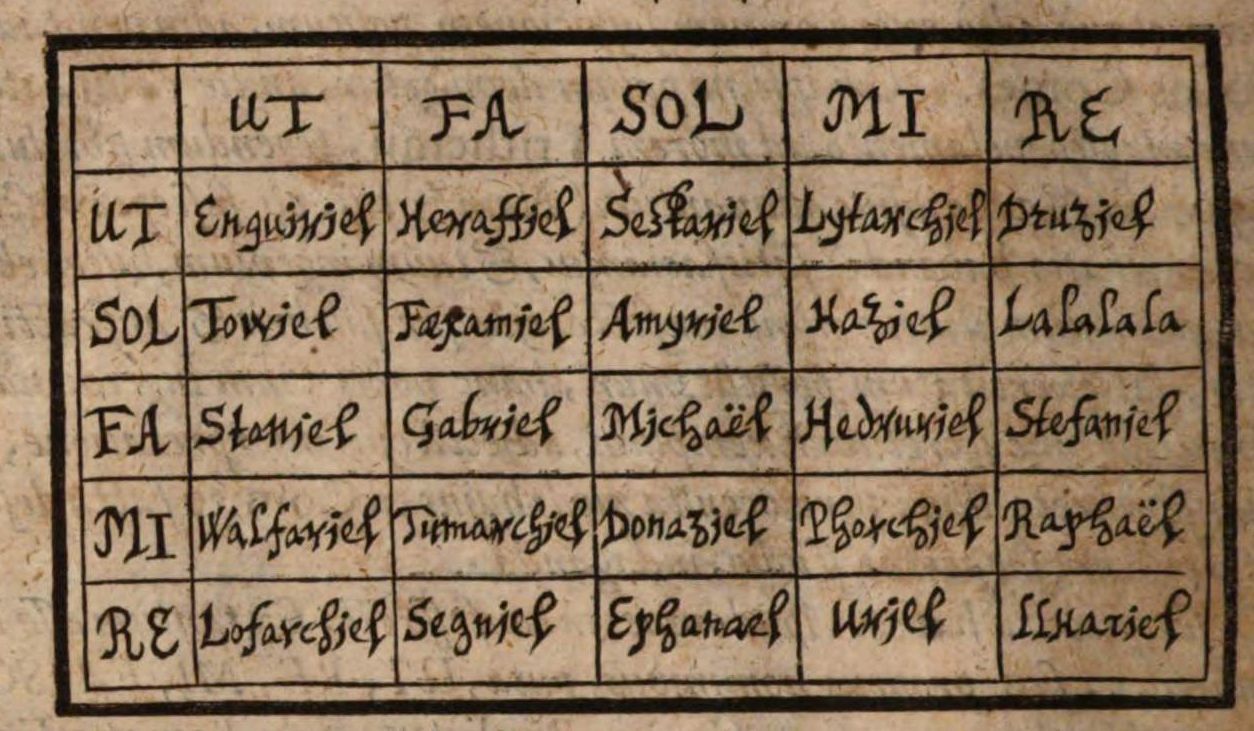 UT FA SOL MI RE
UT Enguiriel Heraffiel Sestariel Lytarchiel Druziel
SOL Towiel Færamiel Amyriel Haziel Lalalala
FA Staniel Gabriel Michaël Hedruriel Stefaniel
MI Walfariel Tumarchiel Donaziel Phorchiel Raphaël
RE Lofarchiel Segniel Ephanael Uriel